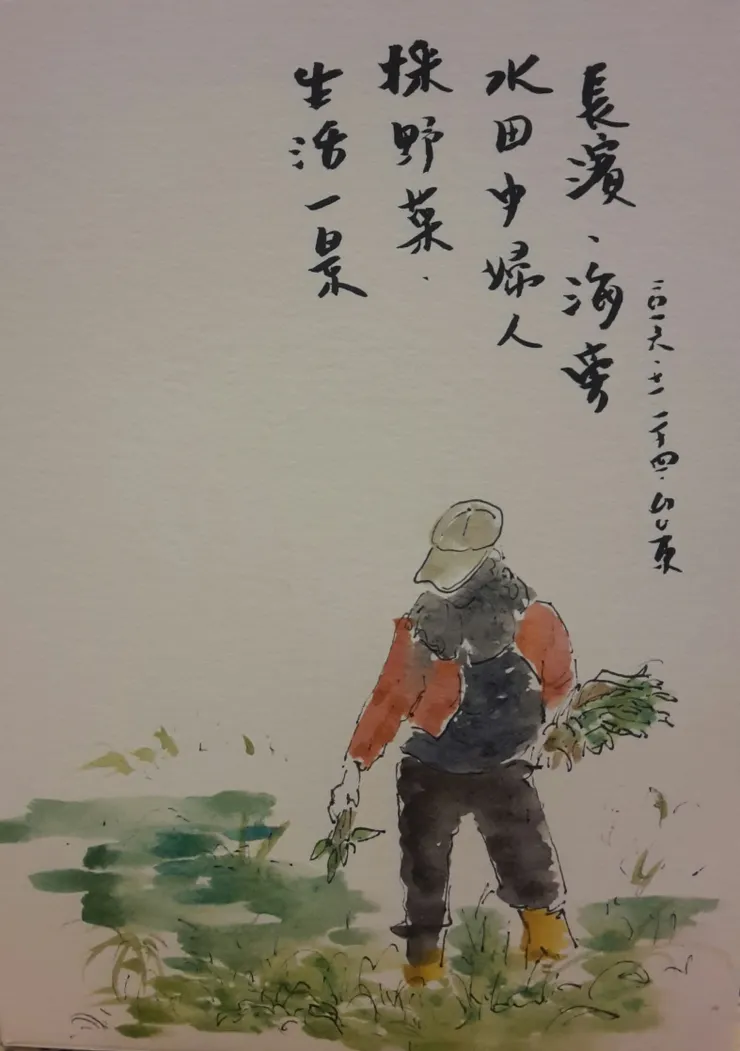 二〇一六.十一.二十四.台東
長濱、海旁
水田中婦人
採野菜.
生活一景